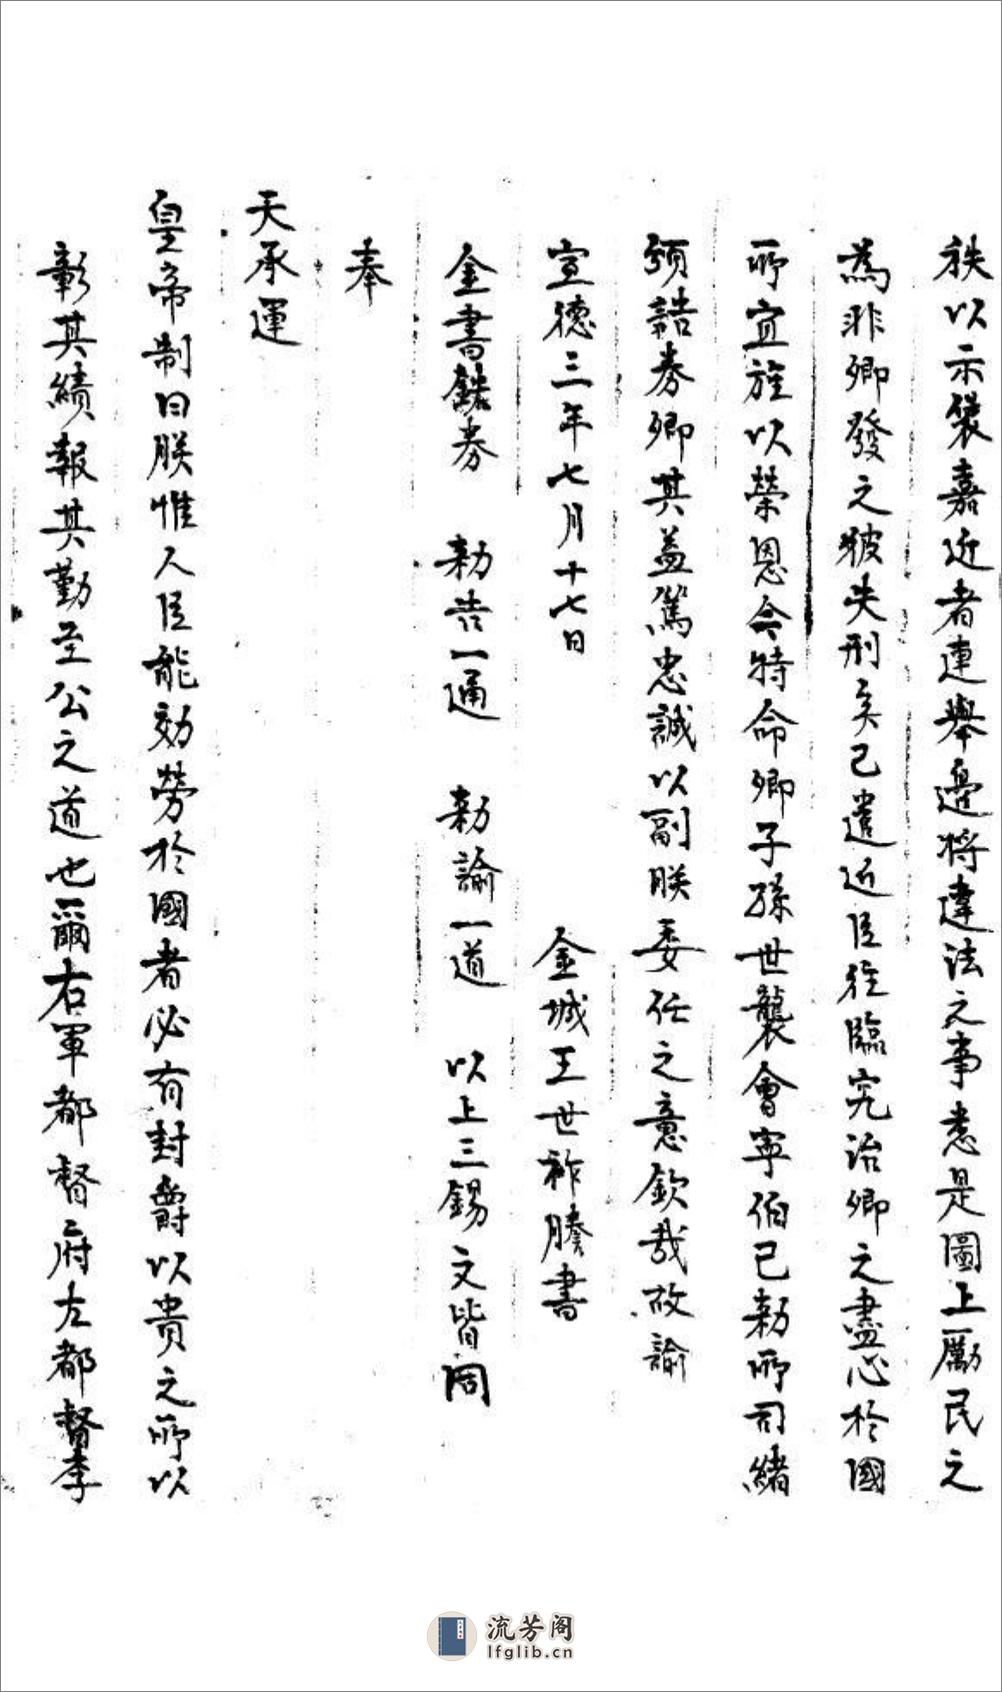 秩以示褒嘉近者連舉邊將違法之事悉是圖上厲民之
為非卿發之彼失刑矣已遣近臣往臨究治卿之盡心於國
所宜旌以榮恩今特命卿子孫世襲會寧伯已勅所司緒
頒誥券卿其益篤忠誠以副朕委任之意欽哉故諭
宣德三年七月十七日 金城王世祚謄書
金書鐵券 勅告一通 勅諭一道 以上三錫文皆同
奉
天承運
皇帝制曰朕惟人臣能効勞於國者必有封爵以貴之所以
彰其績報其勤至公之道也爾右軍都督府左都督李
流芳阁
lfglib.cn